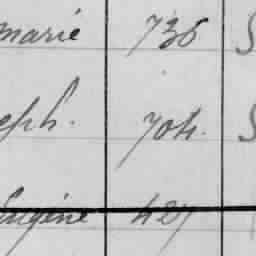 marie 736 S
eph. 704. S
Eugène 427